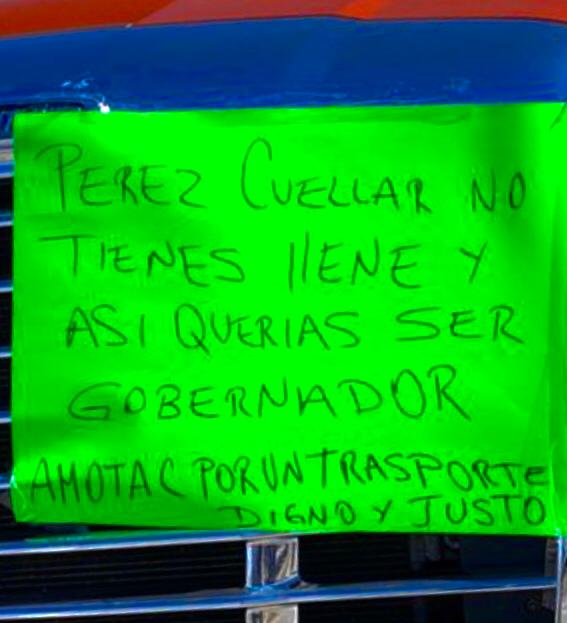 PEREZ CUELLAR NO
TIENES llENE Y
ASI QUERIAS SER
GOBERNADOR
AMOTAC POR UN TRASPORTE
DIGNO Y JUSTO